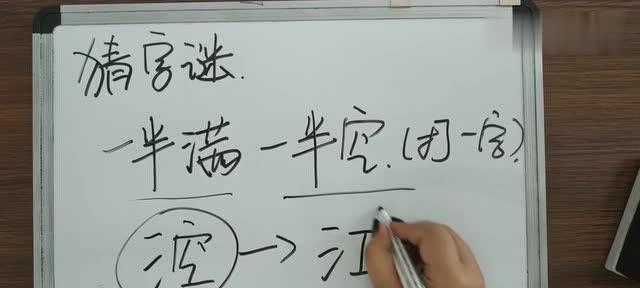 猜字谜.
一半满 一半空.(打一字)
涳→江